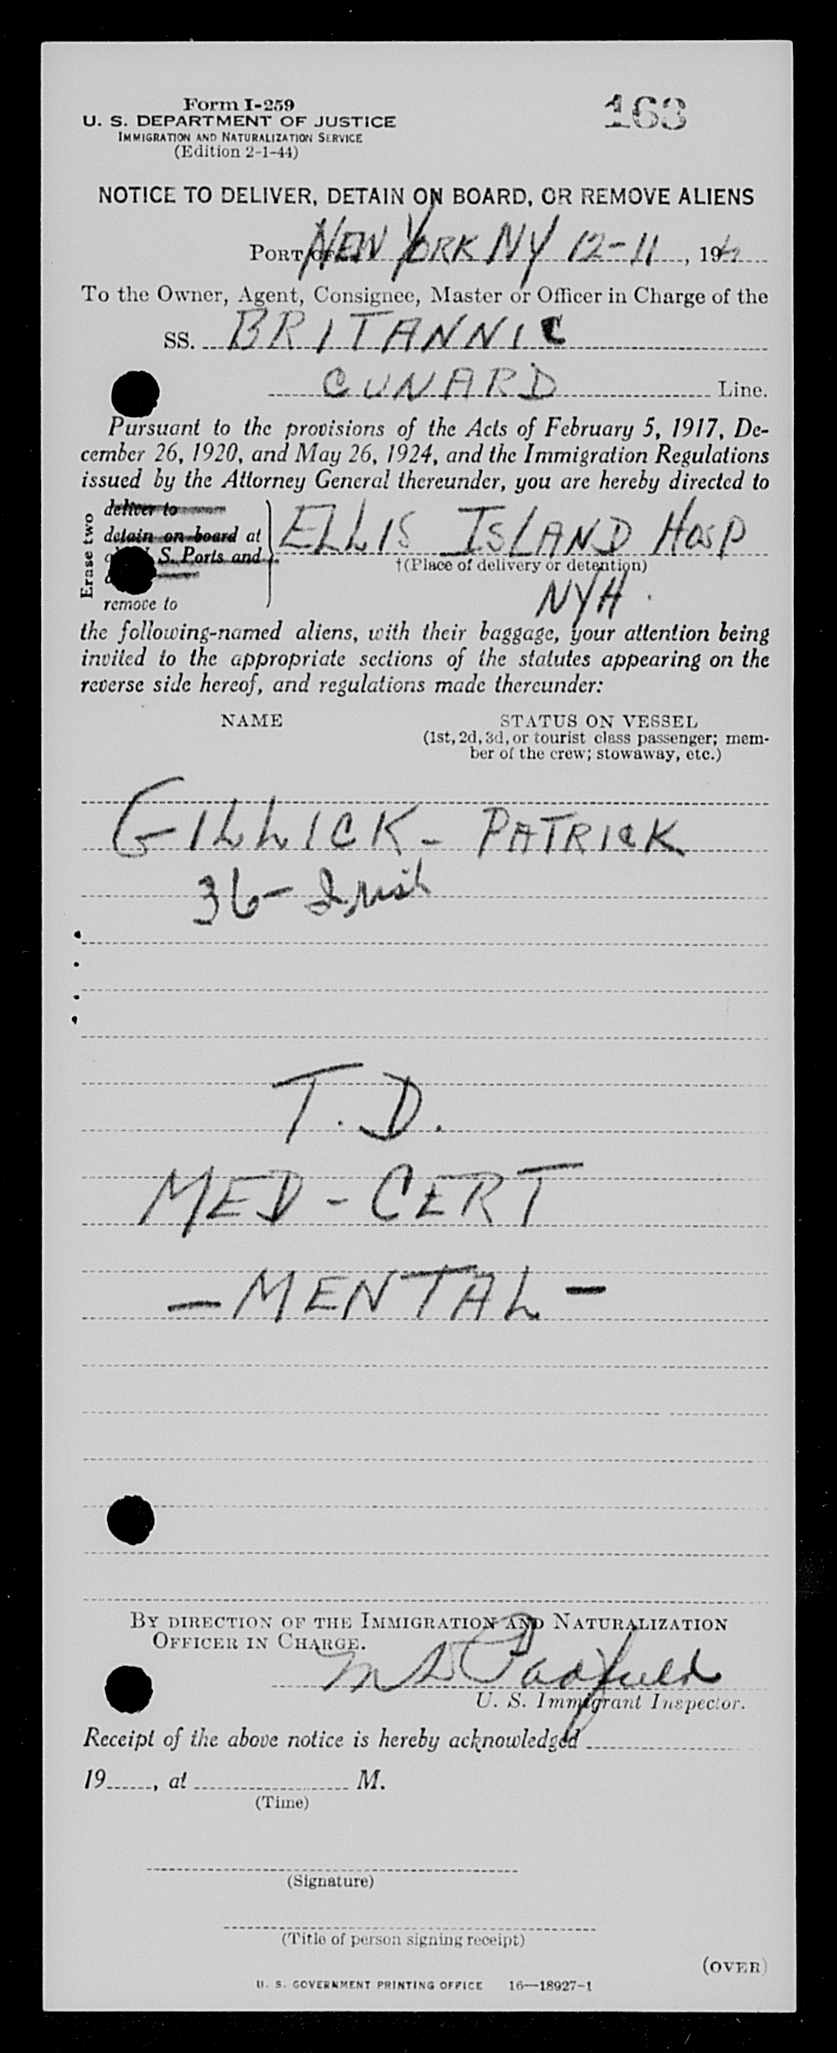 Form I-259
163
U. S. DEPARTMENT OF JUSTICE
IMMIGRATION AND NATURALIZATION SERVICE
(Edition 2-1-44)
NOTICE TO DELIVER, DETAIN ON BOARD, OR REMOVE ALIENS
PORT OF NEW YORK NY 12-11, 194
To the Owner, Agent, Consignee, Master or Officer in Charge of the
SS. BRITANNIC
CUNARD Line.
Pursuant to the provisions of the Acts of February 5, 1917, De-
cember 26, 1920, and May 26, 1924, and the Immigration Regulations
issued by the Attorney General thereunder, you are hereby directed to
Erase two
deliver to
detain on board at ELLIS ISLAND HOSP
S. Ports and
†(Place of delivery or detention)
remove to
NYH.
the following-named aliens, with their baggage, your attention being
invited to the appropriate sections of the statutes appearing on the
reverse side hereof, and regulations made thereunder:
NAME STATUS ON VESSEL
(1st, 2d, 3d, or tourist class passenger; mem-
ber of the crew; stowaway, etc.)
GILLICK - PATRICK
36 - Irish
T.D.
MED - CERT
- MENTAL -
BY DIRECTION OF THE IMMIGRATION AND NATURALIZATION
OFFICER IN CHARGE.
Padfield
U. S. Immigrant Inspector.
Receipt of the above notice is hereby acknowledged
19 , at M.
(Time)
(Signature)
(Title of person signing receipt)
(OVER)
U. S. GOVERNMENT PRINTING OFFICE 16—18927-1